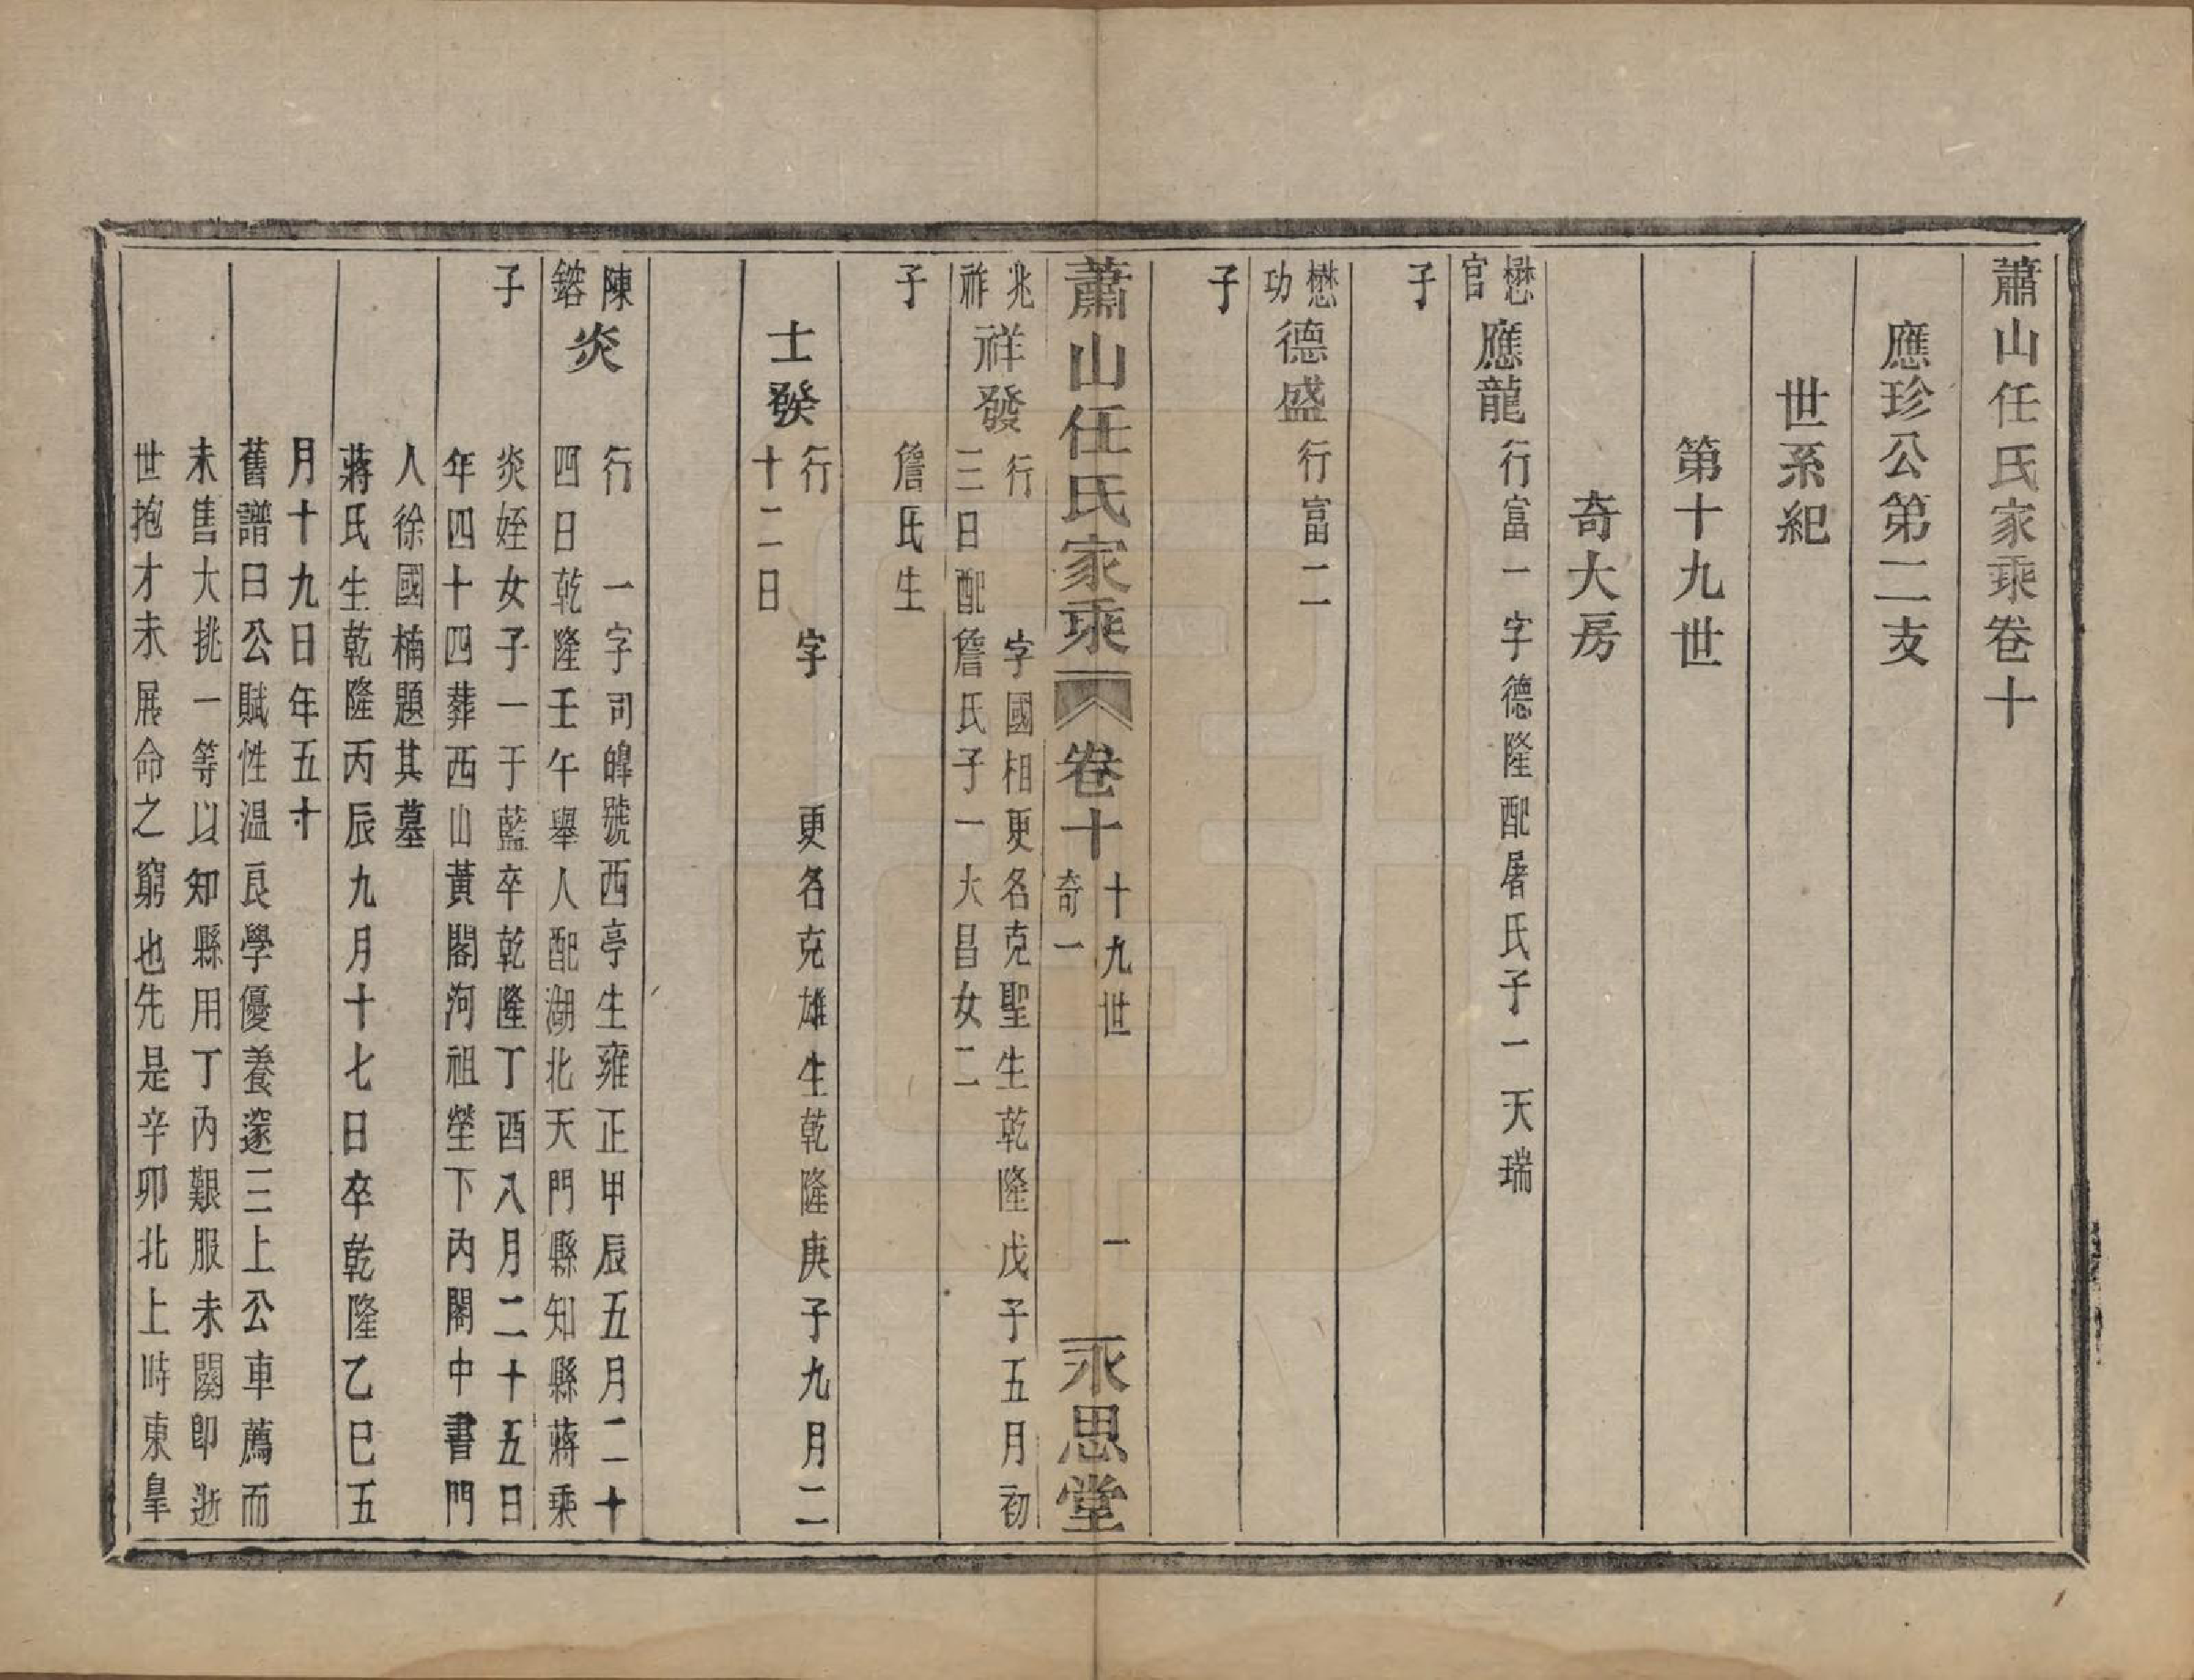 蕭山任氏家乘卷十
應珍公第二支
世系紀
第十九世
奇大房
懋官子
應龍
行富一字德隆配屠氏子一天瑞
懋功子
德盛
行富二
蕭山任氏家乘 卷十 十九世 奇一 一 永思堂
兆祚子
祥發
行 字國相更名克聖生乾隆戊子五月初
三日配詹氏子一大昌女二
詹氏生
士發
行 字 更名克雄生乾隆庚子九月二
十二日
陳鎔子
炎
行 一字司皥號西亭生雍正甲辰五月二十
四日乾隆壬午舉人配湖北天門縣知縣蔣乘
炎姪女子一于藍卒乾隆丁酉八月二十五日
年四十四葬西山黃閣河祖塋下內閣中書門
人徐國楠題其墓
蔣氏生乾隆丙辰九月十七日卒乾隆乙巳五
月十九日年五十
舊譜曰公賦性温良學優養邃三上公車薦而
未售大挑一等以知縣用丁內艱服未闋即逝
世抱才未展命之窮也先是辛卯北上時東皇